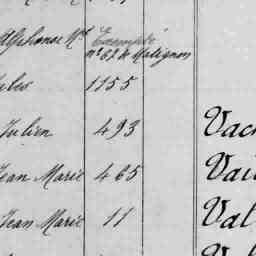 Alphonse Mie Exempté
n° 62 de Matignon
Jules 1155
Julien 493 Vac
Jean Marie 465 Vai
Jean Marie 11 Val